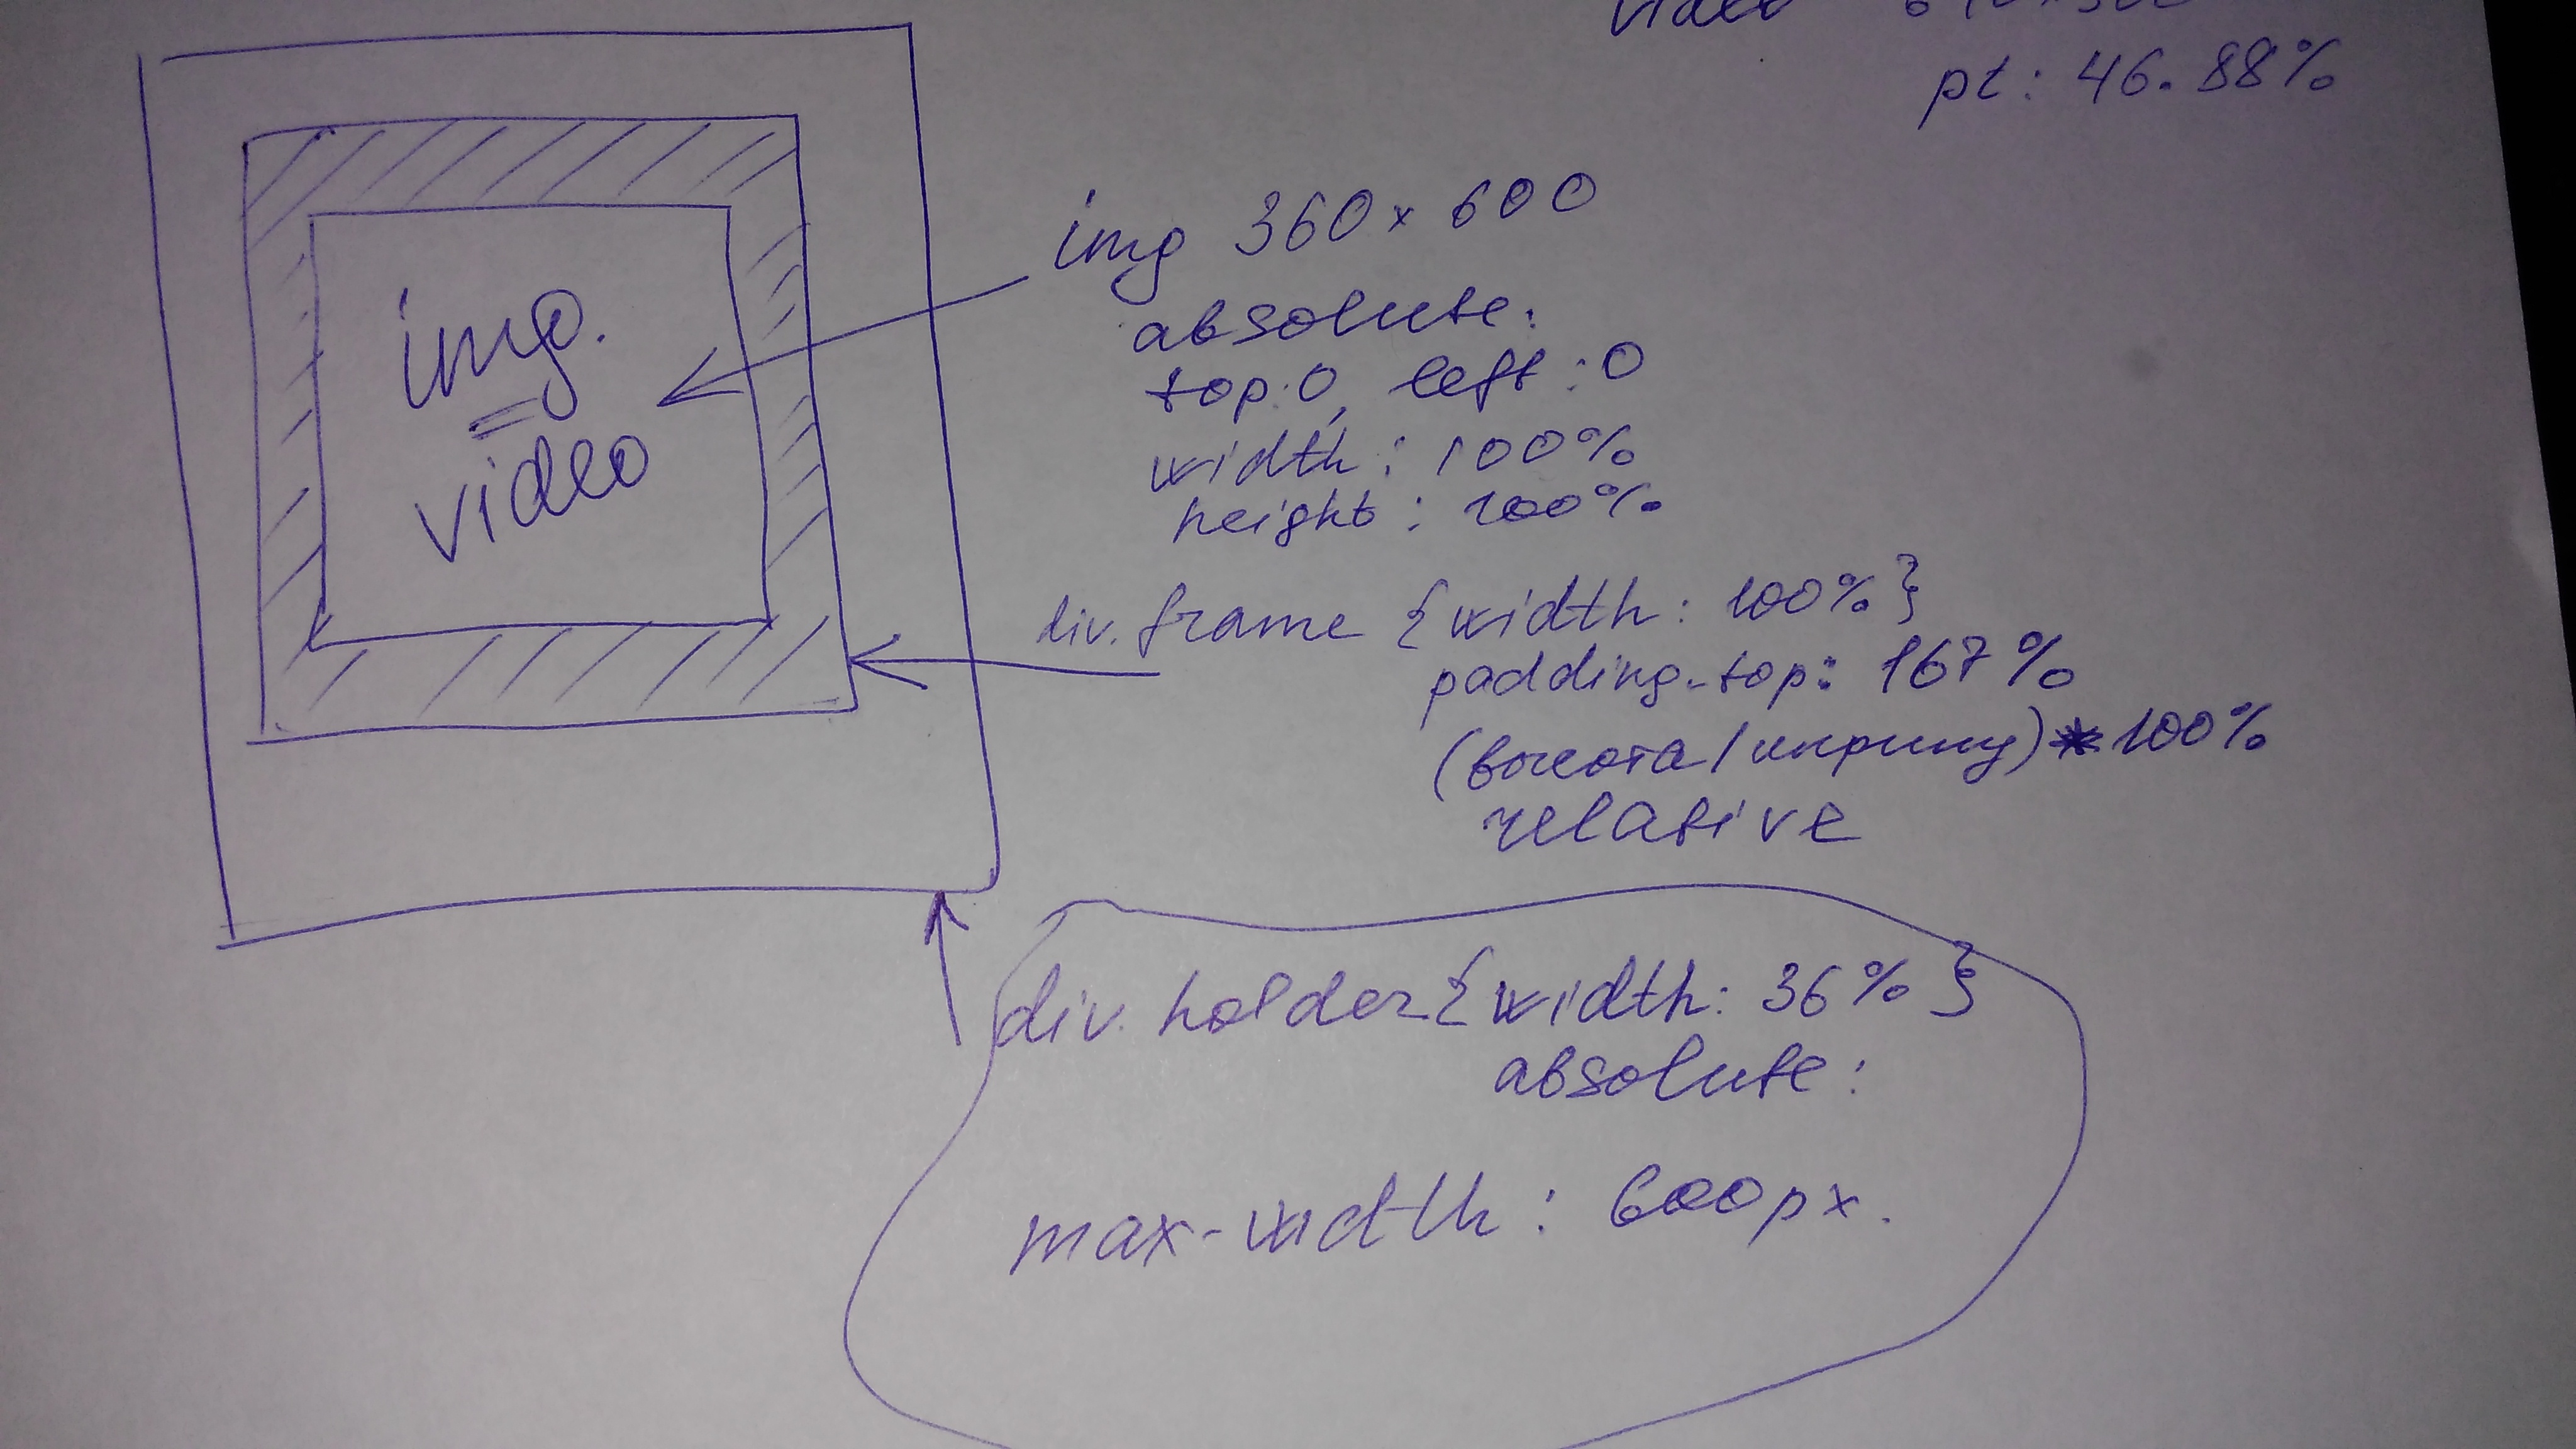 video
pt: 46.88%
img 360 x 600
absolute:
top:0, left:0
width: 100%
height: 100%
img.
video
div.frame {width: 100%}
padding-top: 167%
(высота/ширину)*100%
relative
div.holder{width: 36%}
absolute:
max-width: 600px.